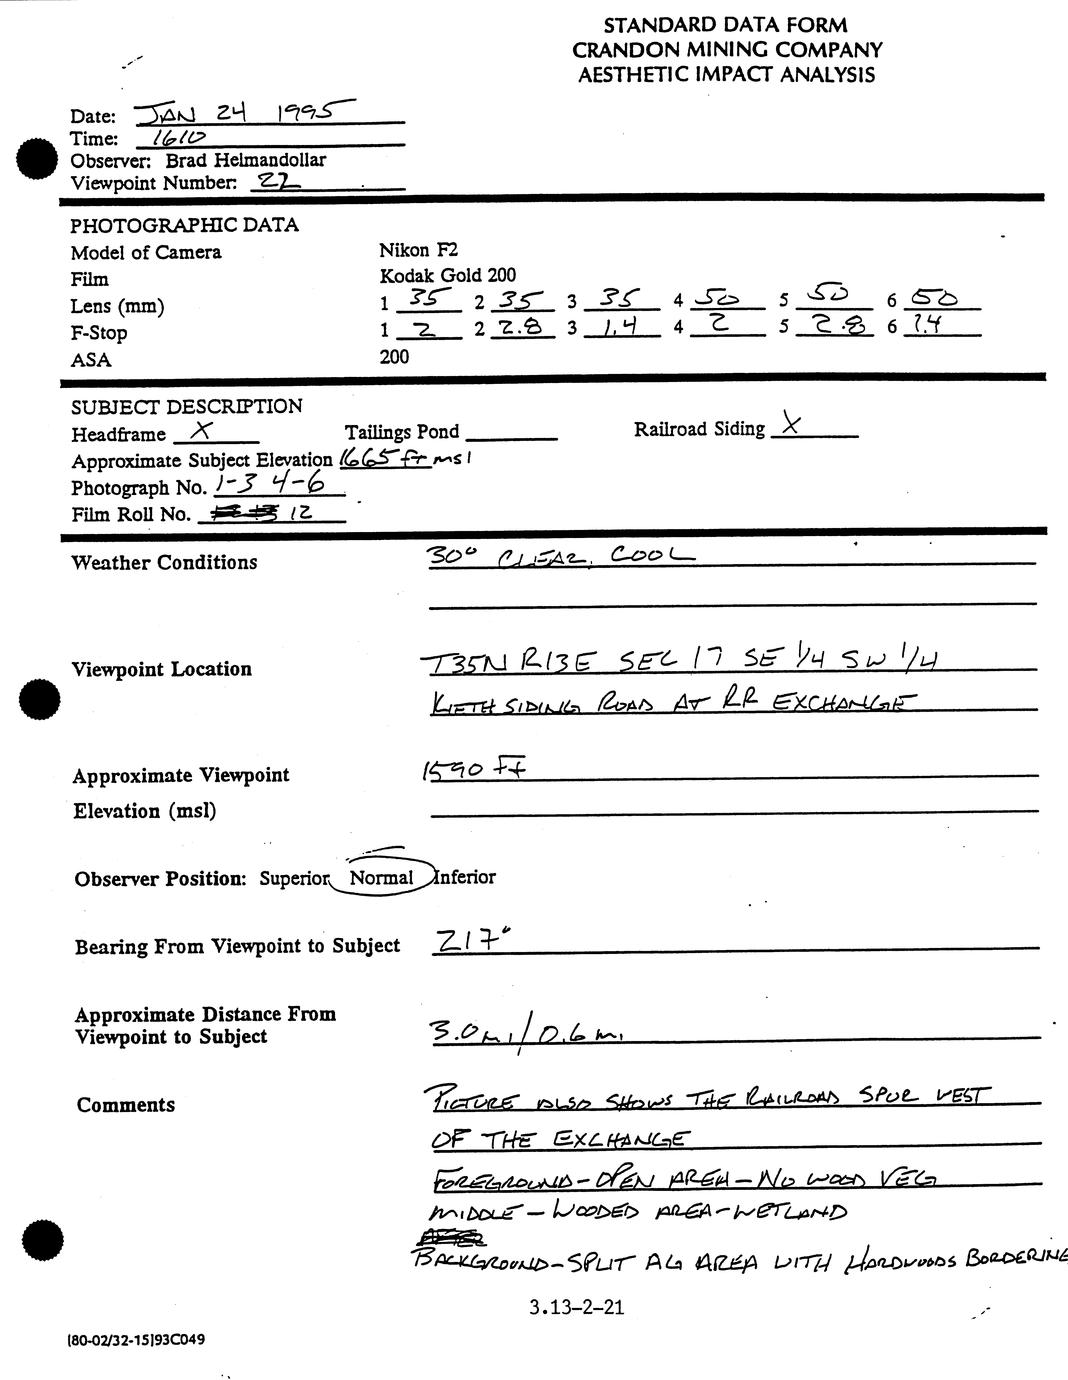 STANDARD DATA FORM
CRANDON MINING COMPANY
AESTHETIC IMPACT ANALYSIS
Date: JAN 24 1995
Time: 1610
Observer: Brad Helmandollar
Viewpoint Number: 22
PHOTOGRAPHIC DATA
Model of Camera Nikon F2
Film Kodak Gold 200
Lens (mm) 1 35 2 35 3 35 4 50 5 50 6 50
F-Stop 1 2 2 2.8 3 1.4 4 2 5 2.8 6 1.4
ASA 200
SUBJECT DESCRIPTION
Headframe X Tailings Pond Railroad Siding X
Approximate Subject Elevation 1665 ft msl
Photograph No. 1-3 4-6
Film Roll No. 12
Weather Conditions 30° CLEAR, COOL
Viewpoint Location T35N R13E SEC 17 SE 1/4 SW 1/4
KIETH SIDING ROAD AT RR EXCHANGE
Approximate Viewpoint 1590 ft
Elevation (msl)
Observer Position: Superior Normal Inferior
Bearing From Viewpoint to Subject 217°
Approximate Distance From
Viewpoint to Subject 3.0 mi/0.6 mi
Comments PICTURE ALSO SHOWS THE RAILROAD SPUR WEST
OF THE EXCHANGE
FOREGROUND-OPEN AREA-NO WOOD VEG
MIDDLE-WOODED AREA-WETLAND
BACKGROUND-SPLIT AG AREA WITH HARDWOODS BORDERING
3.13-2-21
[80-02/32-15]93C049